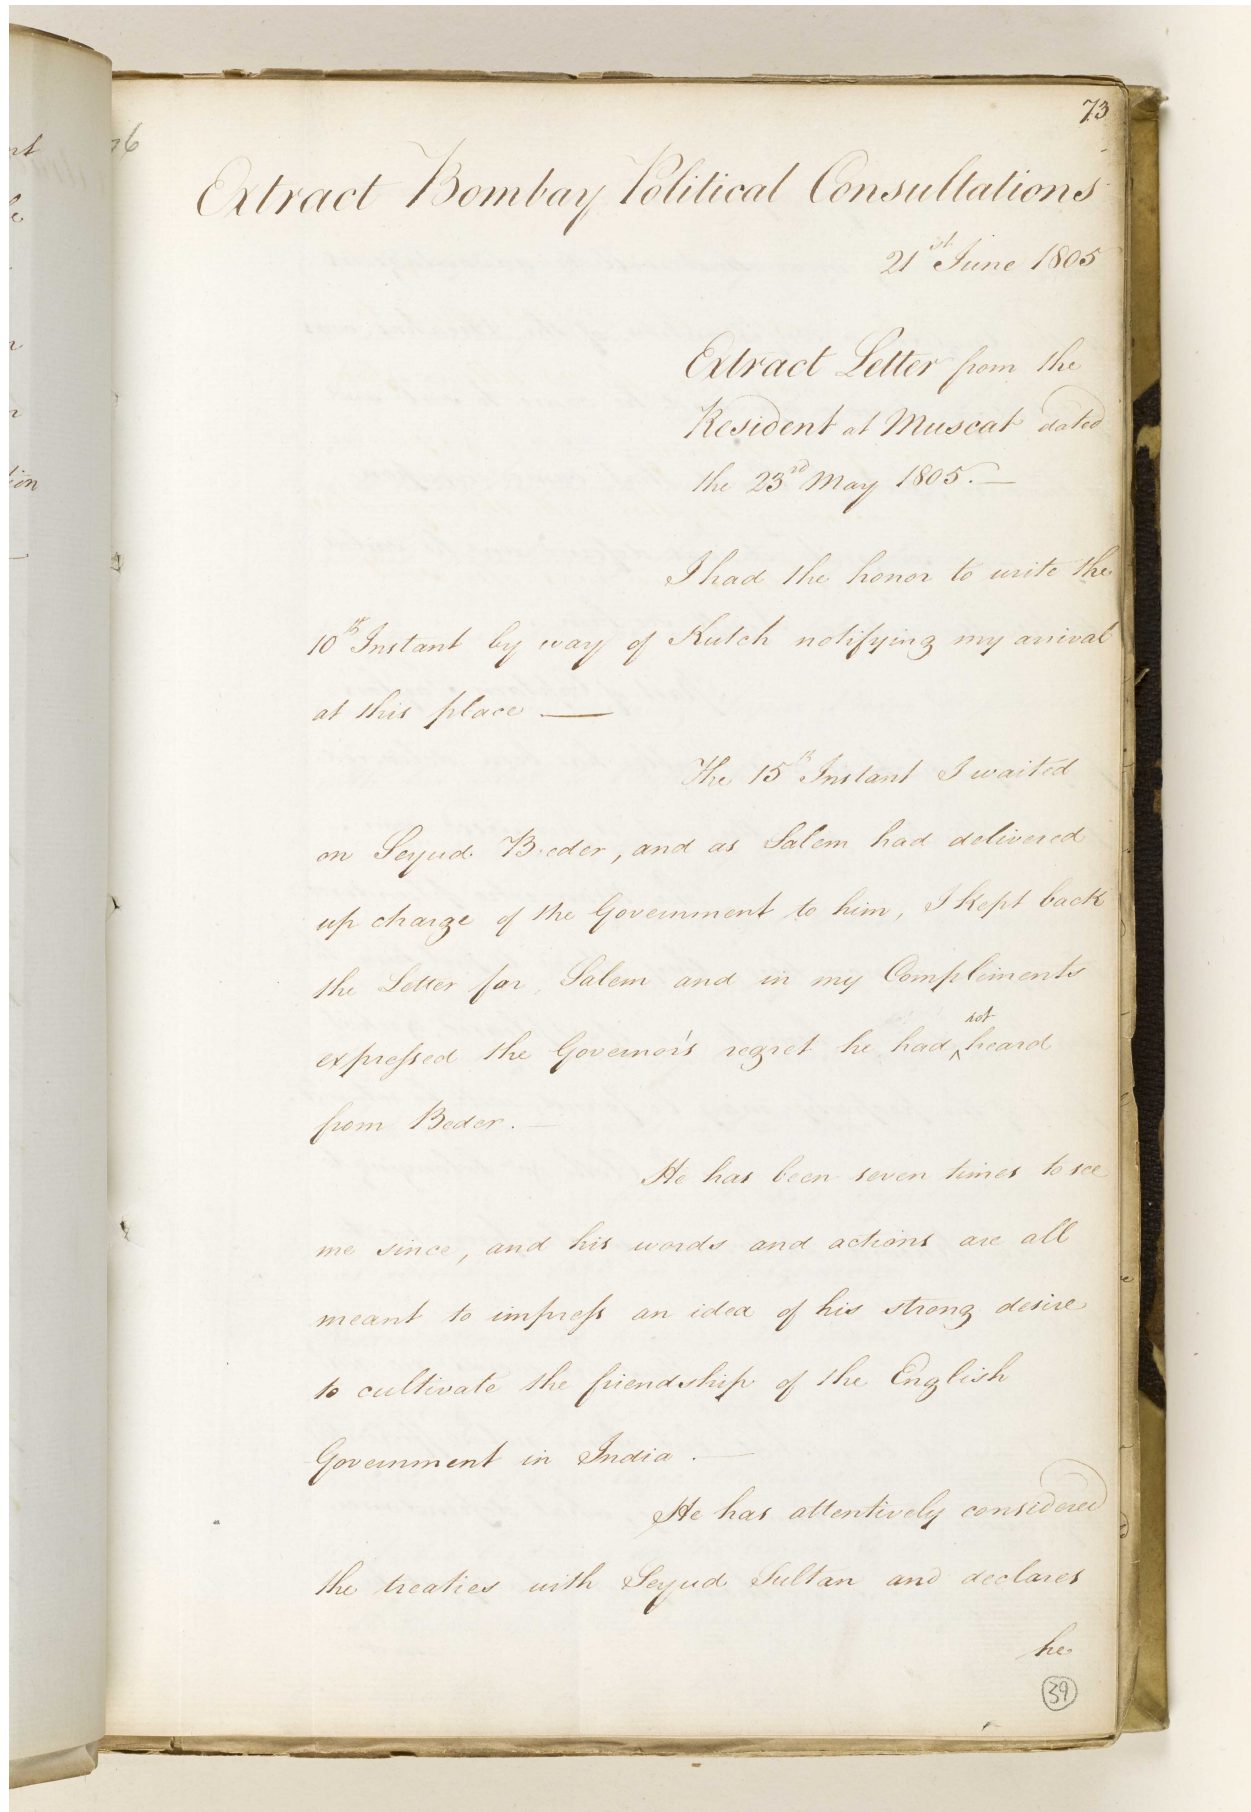 73
Extract Bombay Political Consultations
21st June 1805
Extract Letter from the
Resident at Muscat dated
the 23rd May 1805. —
I had the honor to write the
10th Instant by way of Kutch notifying my arrival
at this place —
The 15th Instant I waited
on Seyud Beder, and as Salem had delivered
up charge of the Government to him, I kept back
the Letter for Salem and in my Compliments
expressed the Governor's regret he had not heard
from Beder. —
He has been seven times to see
me since, and his words and actions are all
meant to impress an idea of his strong desire
to cultivate the friendship of the English
Government in India. —
He has attentively considered
the treaties with Seyud Sultan and declares
he
39